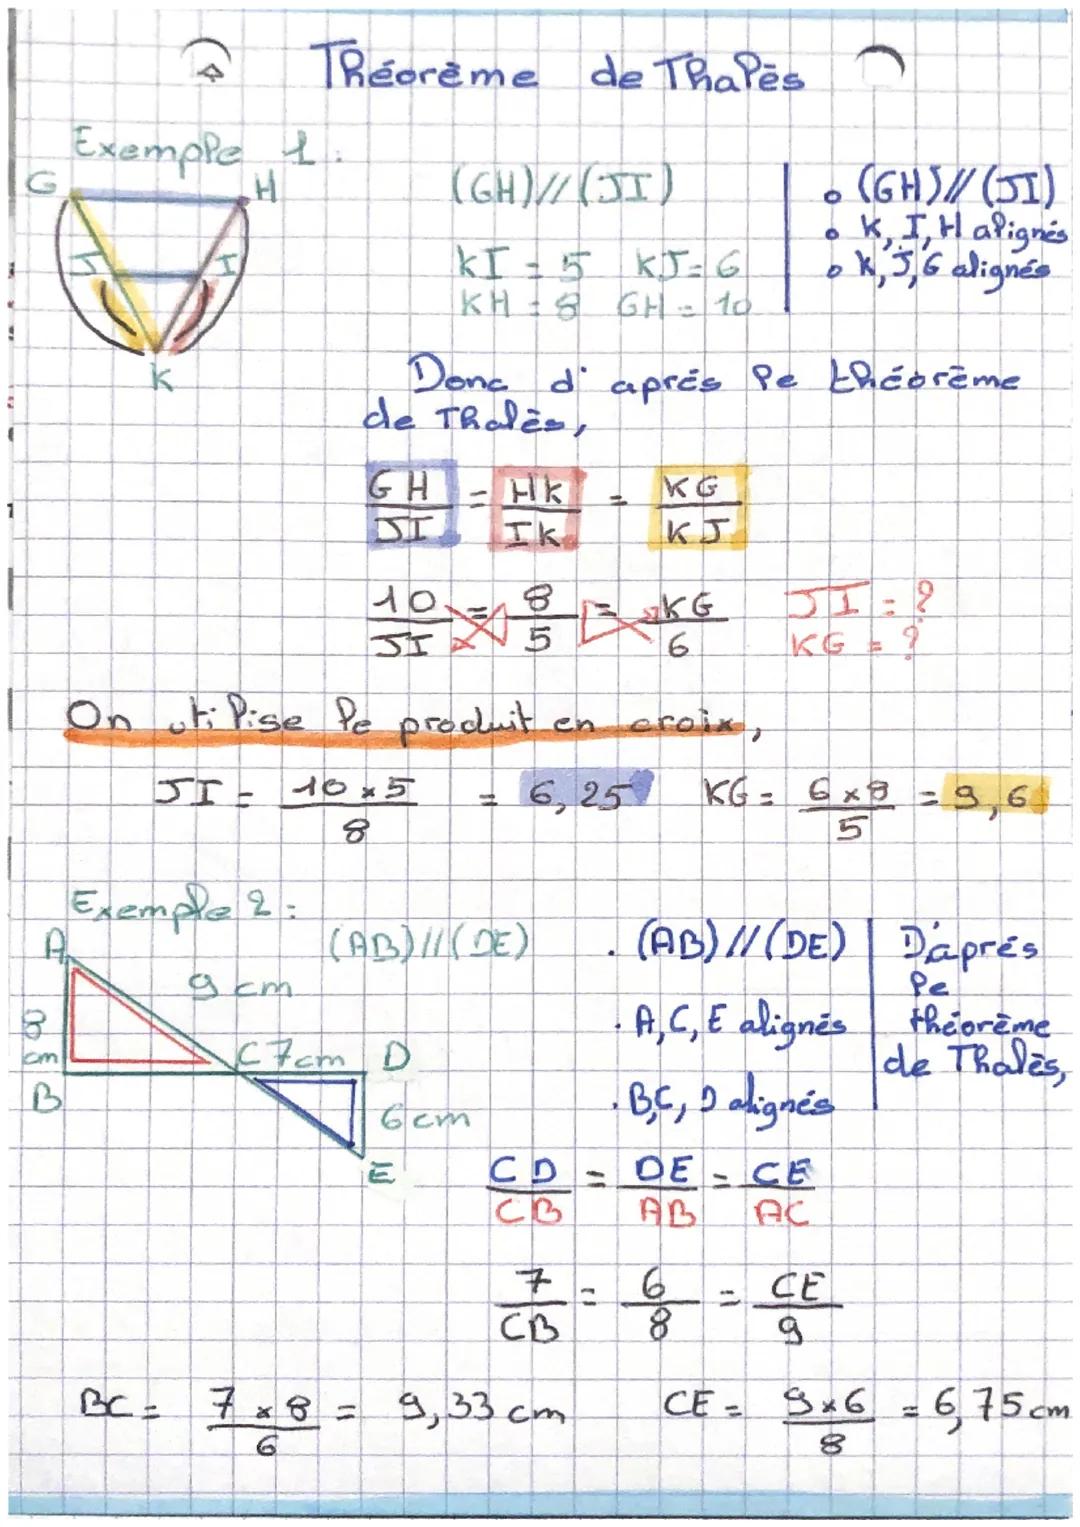 Théorème de Thalès
Exemple 1:
G H
J I
K
(GH)//(JI)
KI = 5 KJ = 6
KH = 8 GH = 10
• (GH)//(JI)
• K, I, H alignés
• K, J, G alignés
Donc d'aprés le théorème
de Thalès,
GH/JI = HK/IK = KG/KJ
10/JI = 8/5 = KG/6
JI = ?
KG = ?
On utilise le produit en croix,
JI = 10 x 5 / 8 = 6,25 KG = 6 x 8 / 5 = 9,6
Exemple 2:
A
9 cm
8 cm
C 7cm D
B
6 cm
E
(AB)//(DE)
. (AB)//(DE)
. A, C, E alignés
. B,C, D alignés
D'aprés
le
théorème
de Thalès,
CD/CB = DE/AB = CE/AC
7/CB = 6/8 = CE/9
BC = 7 x 8 / 6 = 9,33 cm CE = 9 x 6 / 8 = 6,75 cm